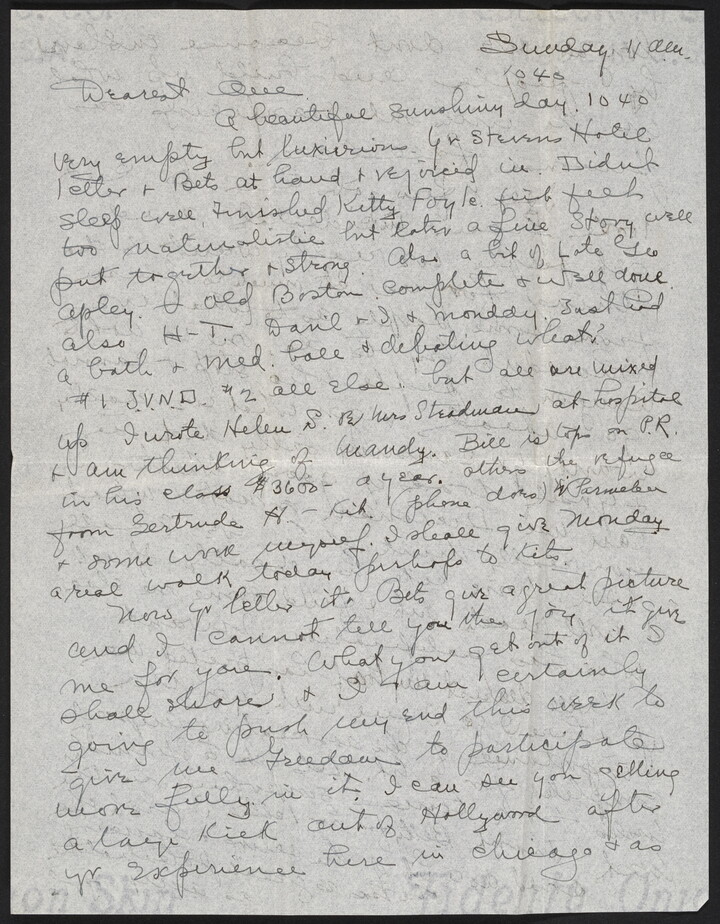 Sunday 11 am.
1040
Dearest
A beautiful sunshiny day. 1040
very empty but luxurious. Yr Stevens Hotel
letter & Bets at hand & rejoiced in. Didnt
sleep well. Finished Kitty Foyle. feel
too naturalistic but later a fine story well
put together & strong. Also a bit of Late Geo
Apley. Old Boston. complete & well done.
also H-T. & Monday. Just had
a bath & med. ball & debating whats
#1 J.V.N.D. #2 all else. but all are mixed
up I wrote Helen S. Mrs Steadman at hospital
& am thinking of Mandy. Bill is tops on P.R.
in his class $3600- a year. others the refugee
from Gertrude H. - Kit. (phone does) Parmelee
& some work myself. I shall give Monday
a real walk today perhaps to Kits.
Now yr letter & Bets give a great picture
and I cannot tell you the joy it give
me for you. What you get out of it I
shall share & I am certainly
going to push my end this week to
give me Freedom to participate
more fully in it. I can see you getting
a large Kick out of Hollywood after
yr Experience here in Chicago & as